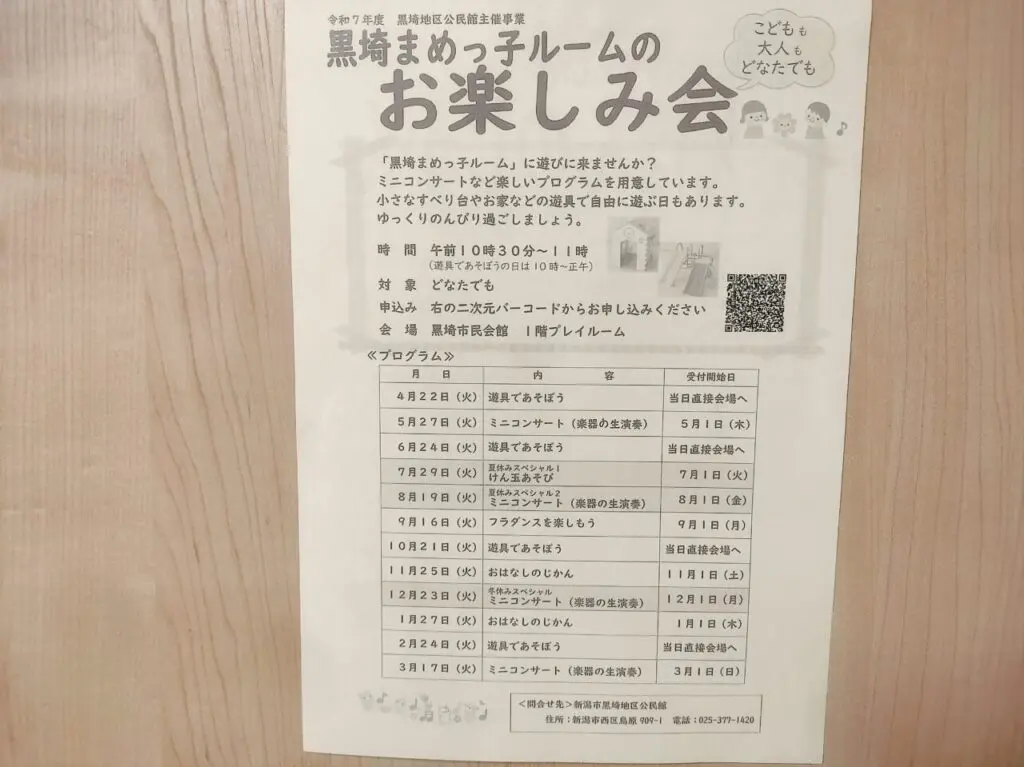 令和7年度 黒埼地区公民館主催事業
黒埼まめっ子ルームの
お楽しみ会
こどもも
大人も
どなたでも
「黒埼まめっ子ルーム」に遊びに来ませんか?
ミニコンサートなど楽しいプログラムを用意しています。
小さなすべり台やお家などの遊具で自由に遊ぶ日もあります。
ゆっくりのんびり過ごしましょう。
時 間 午前10時30分~11時
(遊具であそぼうの日は10時~正午)
対 象 どなたでも
申込み 右の二次元バーコードからお申し込みください
会 場 黒埼市民会館 1階プレイルーム
≪プログラム≫
月 日 内 容 受付開始日
4月22日(火) 遊具であそぼう 当日直接会場へ
5月27日(火) ミニコンサート(楽器の生演奏) 5月1日(木)
6月24日(火) 遊具であそぼう 当日直接会場へ
7月29日(火) 夏休みスペシャル1 けん玉あそび 7月1日(火)
8月19日(火) 夏休みスペシャル2 ミニコンサート(楽器の生演奏) 8月1日(金)
9月16日(火) フラダンスを楽しもう 9月1日(月)
10月21日(火) 遊具であそぼう 当日直接会場へ
11月25日(火) おはなしのじかん 11月1日(土)
12月23日(火) 冬休みスペシャル ミニコンサート(楽器の生演奏) 12月1日(月)
1月27日(火) おはなしのじかん 1月1日(木)
2月24日(火) 遊具であそぼう 当日直接会場へ
3月17日(火) ミニコンサート(楽器の生演奏) 3月1日(日)
<問合せ先>新潟市黒埼地区公民館
住所:新潟市西区鳥原909-1 電話:025-377-1420